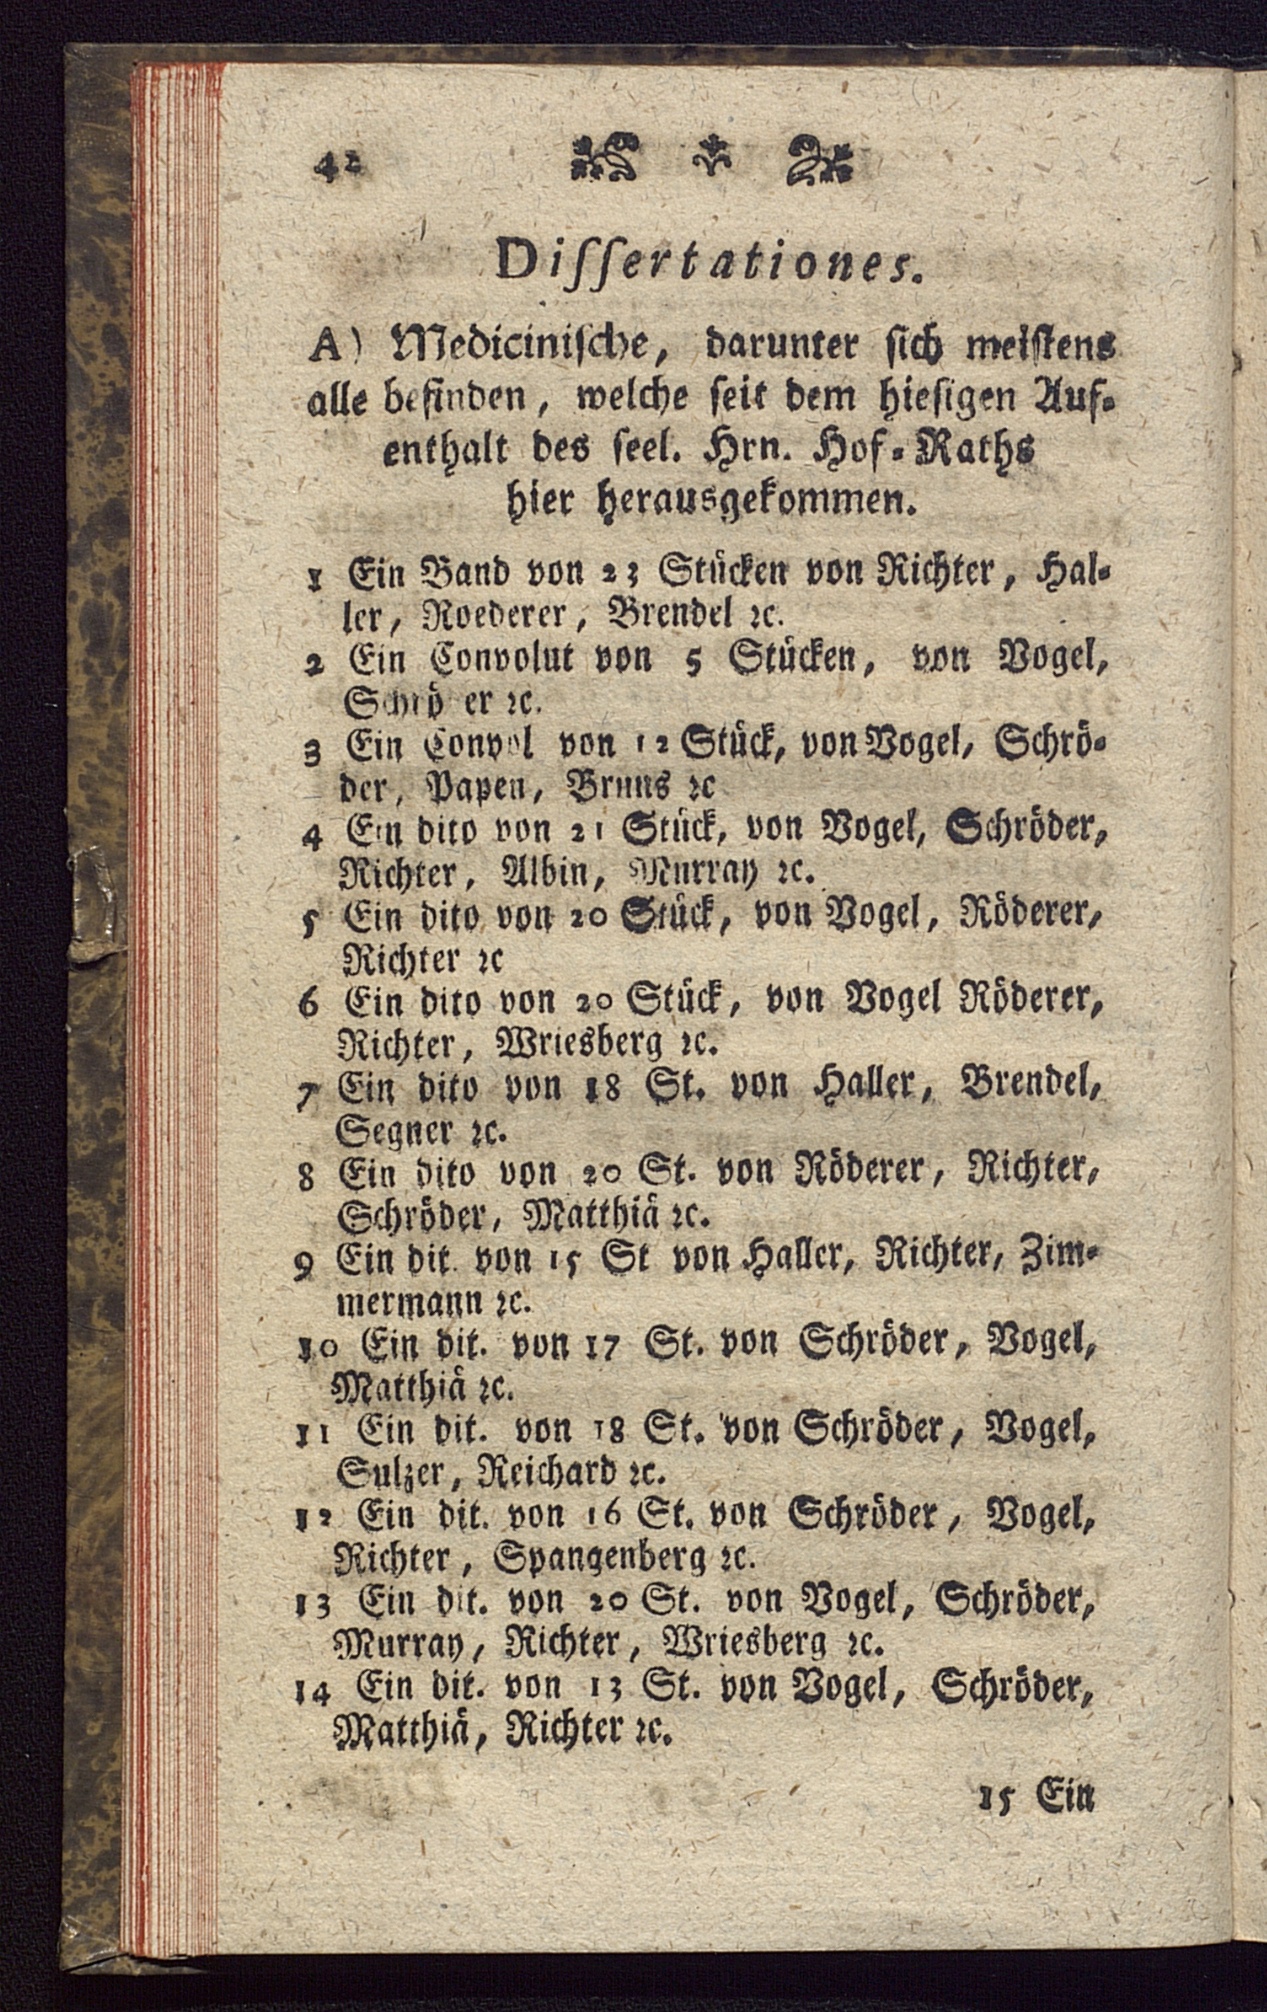 42
Diſſertationes.
A) Mediciniſche, darunter ſich meiſtens
alle befinden, welche ſeit dem hieſigen Auf⸗
enthalt des ſeel. Hrn. Hof⸗Raths
hier herausgekommen.
1 Ein Band von 23 Stücken von Richter, Hal⸗
ler, Roederer, Brendel ꝛc.
2 Ein Convolut von 5 Stücken, von Vogel,
Schrö er ꝛc.
3 Ein Convol von 12 Stück, von Vogel, Schrö⸗
der, Papen, Bruns ꝛc
4 Ein dito von 21 Stück, von Vogel, Schröder,
Richter, Albin, Murray ꝛc.
5 Ein dito von 20 Stück, von Vogel, Röderer,
Richter ꝛc
6 Ein dito von 20 Stück, von Vogel Röderer,
Richter, Wriesberg ꝛc.
7 Ein dito von 18 St. von Haller, Brendel,
Segner ꝛc.
8 Ein dito von 20 St. von Röderer, Richter,
Schröder, Matthiä ꝛc.
9 Ein dit. von 15 St von Haller, Richter, Zim⸗
mermann ꝛc.
10 Ein dit. von 17 St. von Schröder, Vogel,
Matthiä ꝛc.
11 Ein dit. von 18 St. von Schröder, Vogel,
Sulzer, Reichard ꝛc.
12 Ein dit. von 16 St. von Schröder, Vogel,
Richter, Spangenberg ꝛc.
13 Ein dit. von 20 St. von Vogel, Schröder,
Murray, Richter, Wriesberg ꝛc.
14 Ein dit. von 13 St. von Vogel, Schröder,
Matthiä, Richter ꝛc.
15 Ein